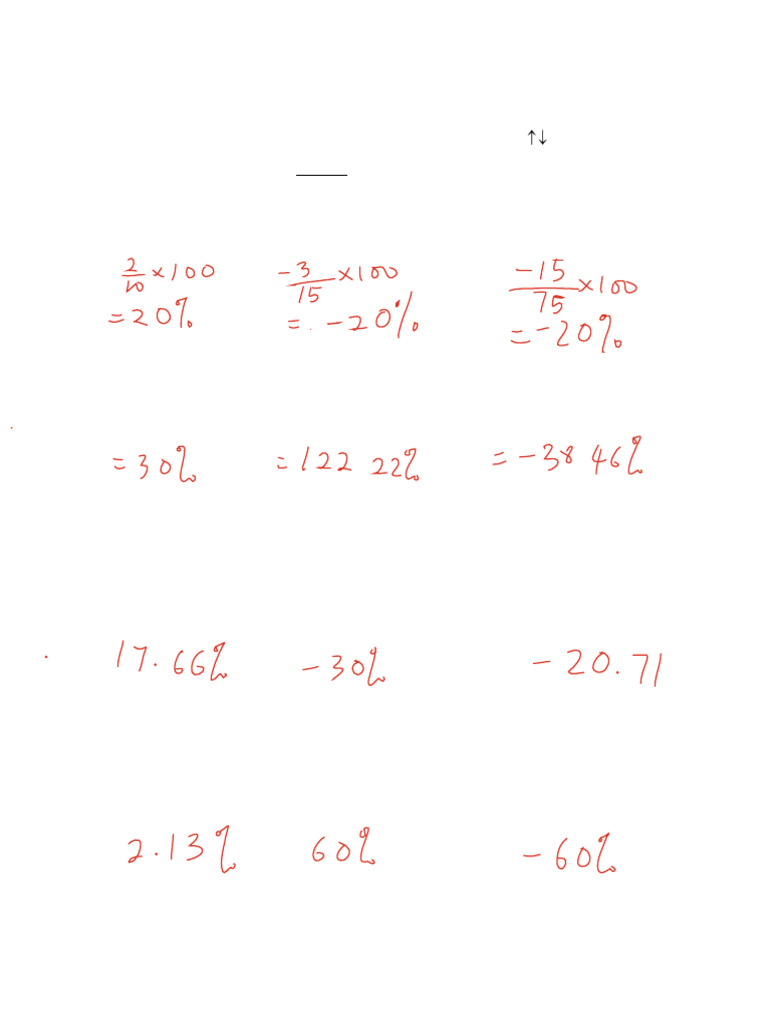 ↑↓
2/10 ×100 -3/15 ×100 -15/75 ×100
=20% = -20% =-20%
=30% =122 22% =-38 46%
17.66% -30% -20.71
2.13% 60% -60%